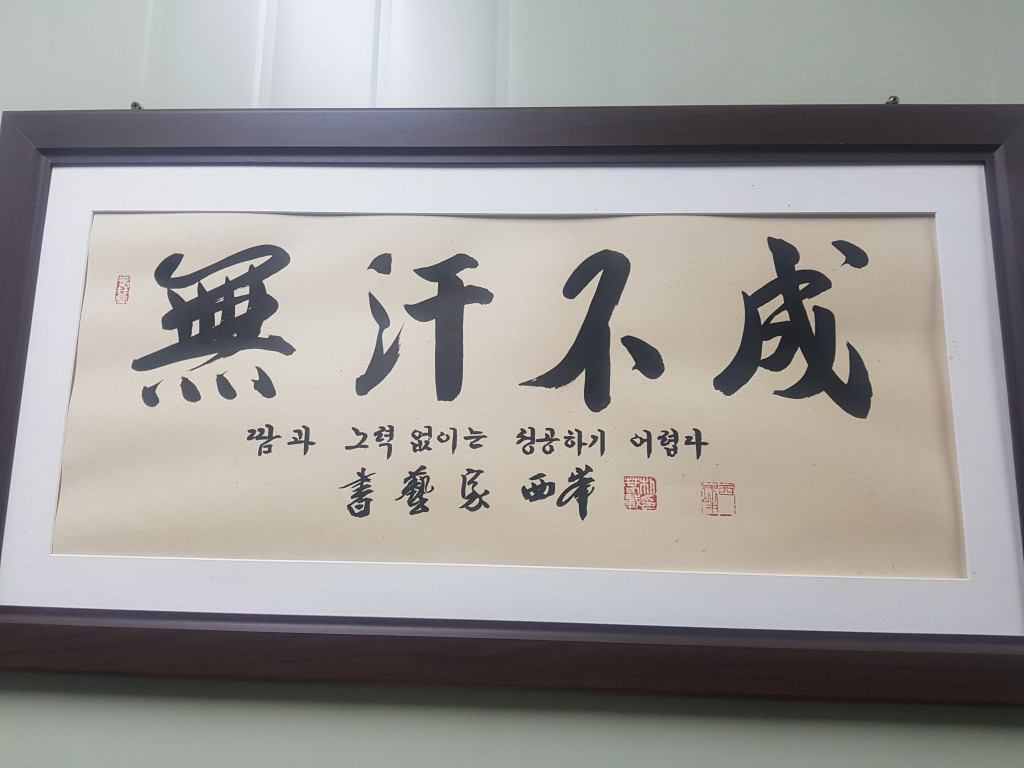 無汗不成
땀과 노력 없이는 성공하기 어렵다
書藝家 西峯